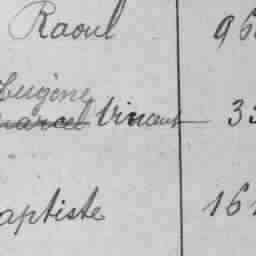 Raoul 96
Eugène
Marcel Vincent 33
aptiste 161